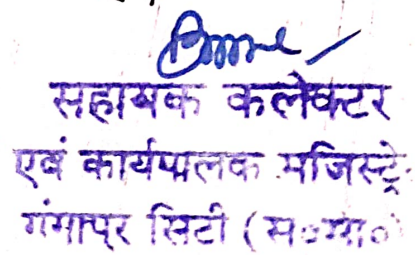 सहायक कलेक्टर
एवं कार्यपालक मजिस्ट्रे
गंगापुर सिटी (स०मा०